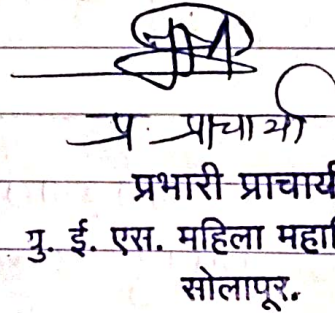 प्र. प्राचार्या
प्रभारी प्राचार्य
यु. ई. एस. महिला महावि
सोलापूर.